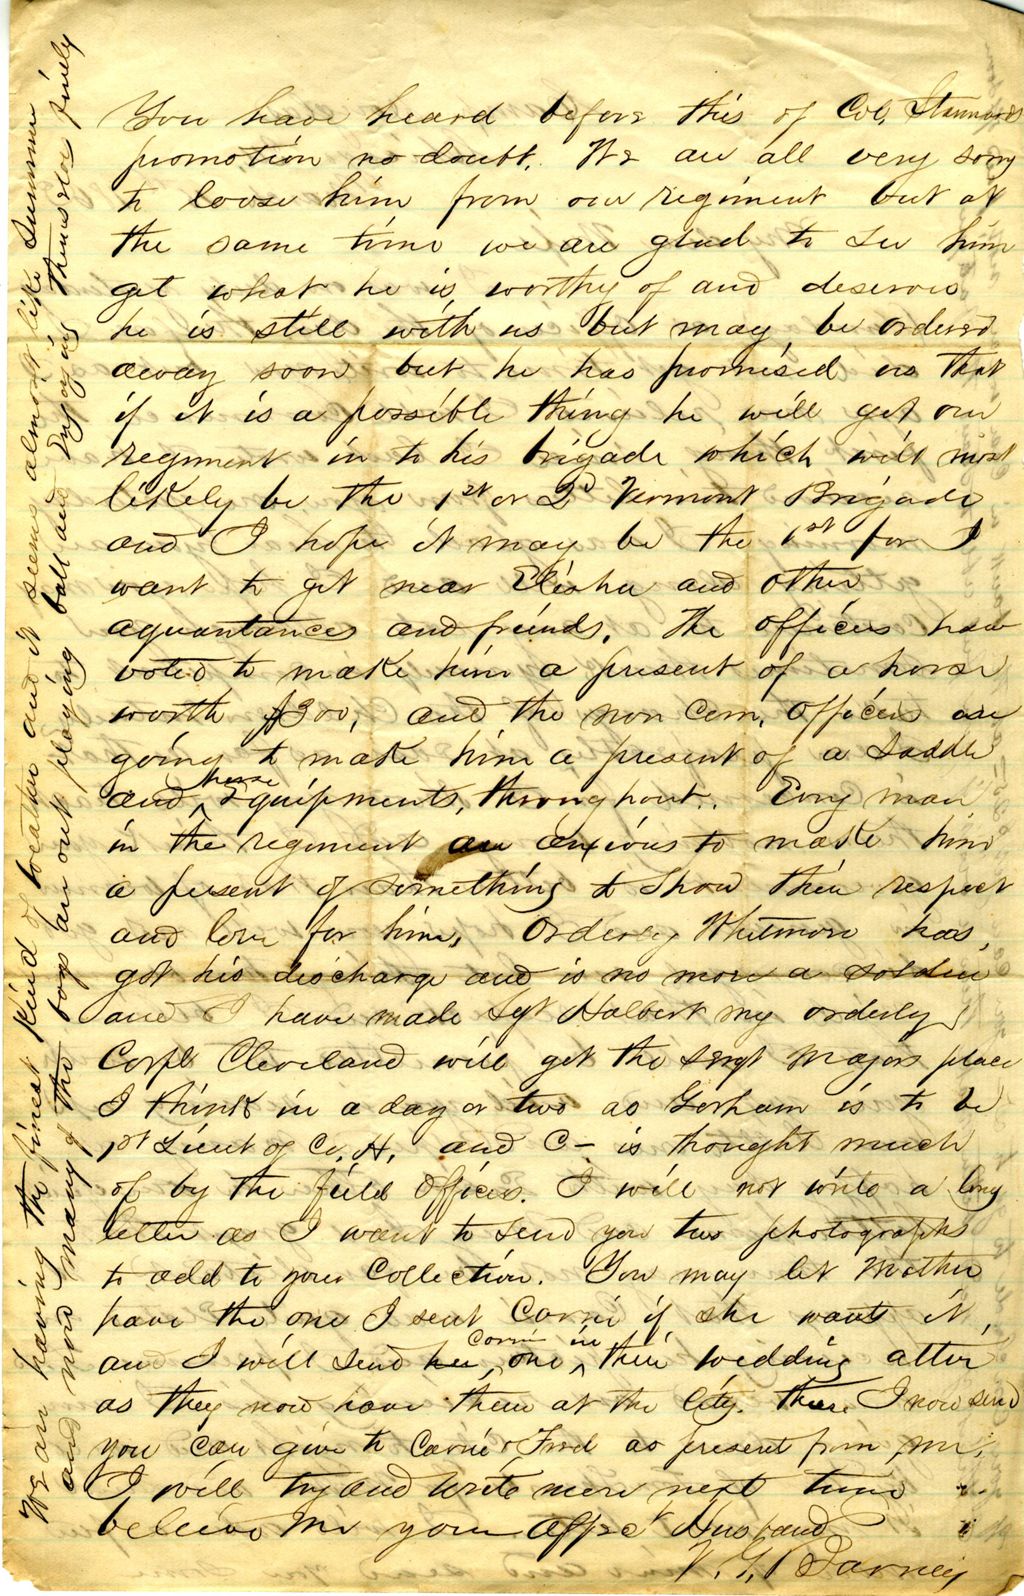 You have heard before this of Col. Stannards
promotion no doubt. We are all very sorry
to loose him from our regiment but at
the same time we are glad to see him
get what he is worthy of and deserves
he is still with us but may be ordered
away soon but he has promised us that
if it is a possible thing he will get our
regiment in to his brigade which will most
likely be the 1st or 2d Vermont Brigade
and I hope it may be the 1st for I
want to get near Elisha and other
aquantances and friends. The officers have
voted to make him a present of a horse
worth $300, and the non com. officers are
going to make him a present of a saddle
and horse Equipments, throughout. Evry man
in the regiment are anxious to make him
a present of something to show their respect
and love for him. Orderly Whitmore has
got his discharge and is no more a soldier
and I have made Sgt Halbert my orderly
Corpl Cleveland will get the Sergt Majors place
I think in a day or two as Gorham is to be
1st Lieut of Co. H. and C— is thought much
of by the field officers. I will not write a long
letter as I want to send you two photographs
to add to your collection. You may let Mother
have the one I sent Carrie if she wants it
and I will send her, Carrie one in their wedding attire
as they now have them at the city. these I now send
you can give to Carrie & Fred as present from me.
I will try and write more next time
believe me your affect Husband
V. G. Barney
We are having the finest kind of weather and it seems almost like Summer
and now many of the boys are out playing ball and Enjoying themselves finely